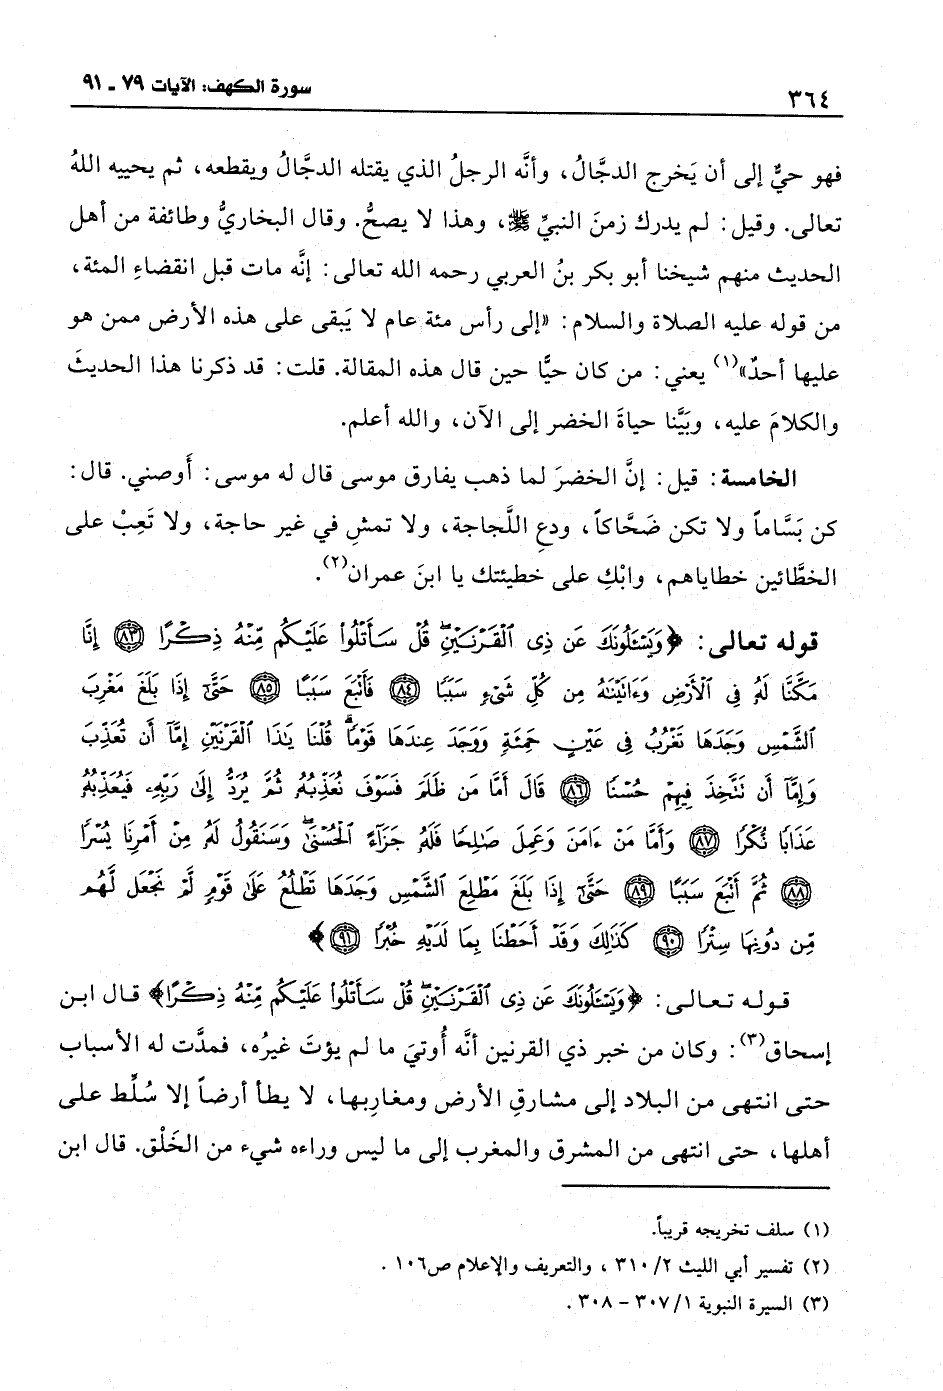 ٣٦٤
سورة الكهف: الآيات ٧٩ ـ ٩١
فهو حيٌّ إلى أن يَخرج الدجَّالُ، وأنَّه الرجلُ الذي يقتله الدجَّالُ ويقطعه، ثم يحييه اللهُ
تعالى. وقيل: لم يدرك زمنَ النبيِّ ﷺ، وهذا لا يصحُّ. وقال البخاريُّ وطائفة من أهل
الحديث منهم شيخنا أبو بكر بنُ العربي رحمه الله تعالى: إنَّه مات قبل انقضاءِ المئة،
من قوله عليه الصلاة والسلام: «إلى رأس مئة عام لا يَبقى على هذه الأرض ممن هو
عليها أحدٌ»(١) يعني: من كان حيًّا حين قال هذه المقالة. قلت: قد ذكرنا هذا الحديثَ
والكلامَ عليه، وبَيَّنا حياةَ الخضر إلى الآن، والله أعلم.
الخامسة: قيل: إنَّ الخضرَ لما ذهب يفارق موسى قال له موسى: أَوصني. قال:
كن بَسَّاماً ولا تكن ضَحَّاكاً، ودعِ اللَّجاجة، ولا تمشِ في غير حاجة، ولا تَعِبْ على
الخطَّائين خطاياهم، وابْكِ على خطيئتك يا ابنَ عمران(٢).
قوله تعالى: ﴿وَيَسْـَٔلُونَكَ عَن ذِى ٱلْقَرْنَيْنِۖ قُلْ سَأَتْلُوا۟ عَلَيْكُم مِّنْهُ ذِكْرًا ٨٣ إِنَّا
مَكَّنَّا لَهُۥ فِى ٱلْأَرْضِ وَءَاتَيْنَٰهُ مِن كُلِّ شَىْءٍ سَبَبًا ٨٤ فَأَتْبَعَ سَبَبًا ٨٥ حَتَّىٰٓ إِذَا بَلَغَ مَغْرِبَ
ٱلشَّمْسِ وَجَدَهَا تَغْرُبُ فِى عَيْنٍ حَمِئَةٍ وَوَجَدَ عِندَهَا قَوْمًاۗ قُلْنَا يَٰذَا ٱلْقَرْنَيْنِ إِمَّآ أَن تُعَذِّبَ
وَإِمَّآ أَن تَتَّخِذَ فِيهِمْ حُسْنًا ٨٦ قَالَ أَمَّا مَن ظَلَمَ فَسَوْفَ نُعَذِّبُهُۥ ثُمَّ يُرَدُّ إِلَىٰ رَبِّهِۦ فَيُعَذِّبُهُۥ
عَذَابًا نُّكْرًا ٨٧ وَأَمَّا مَنْ ءَامَنَ وَعَمِلَ صَٰلِحًا فَلَهُۥ جَزَآءً ٱلْحُسْنَىٰۖ وَسَنَقُولُ لَهُۥ مِنْ أَمْرِنَا يُسْرًا
٨٨ ثُمَّ أَتْبَعَ سَبَبًا ٨٩ حَتَّىٰٓ إِذَا بَلَغَ مَطْلِعَ ٱلشَّمْسِ وَجَدَهَا تَطْلُعُ عَلَىٰ قَوْمٍ لَّمْ نَجْعَل لَّهُم
مِّن دُونِهَا سِتْرًا ٩٠ كَذَٰلِكَ وَقَدْ أَحَطْنَا بِمَا لَدَيْهِ خُبْرًا ٩١﴾
قوله تعالى: ﴿وَيَسْـَٔلُونَكَ عَن ذِى ٱلْقَرْنَيْنِۖ قُلْ سَأَتْلُوا۟ عَلَيْكُم مِّنْهُ ذِكْرًا﴾ قال ابن
إسحاق(٣): وكان من خبر ذي القرنين أنَّه أُوتيَ ما لم يؤتَ غيرُه، فمدَّت له الأسباب
حتى انتهى من البلاد إلى مشارقِ الأرض ومغاربِها، لا يطأ أرضاً إلا سُلِّط على
أهلها، حتى انتهى من المشرق والمغرب إلى ما ليس وراءه شيء من الخَلْق. قال ابن
(١) سلف تخريجه قريباً.
(٢) تفسير أبي الليث ٢/ ٣١٠، والتعريف والإعلام ص١٠٦.
(٣) السيرة النبوية ١/ ٣٠٧ – ٣٠٨.